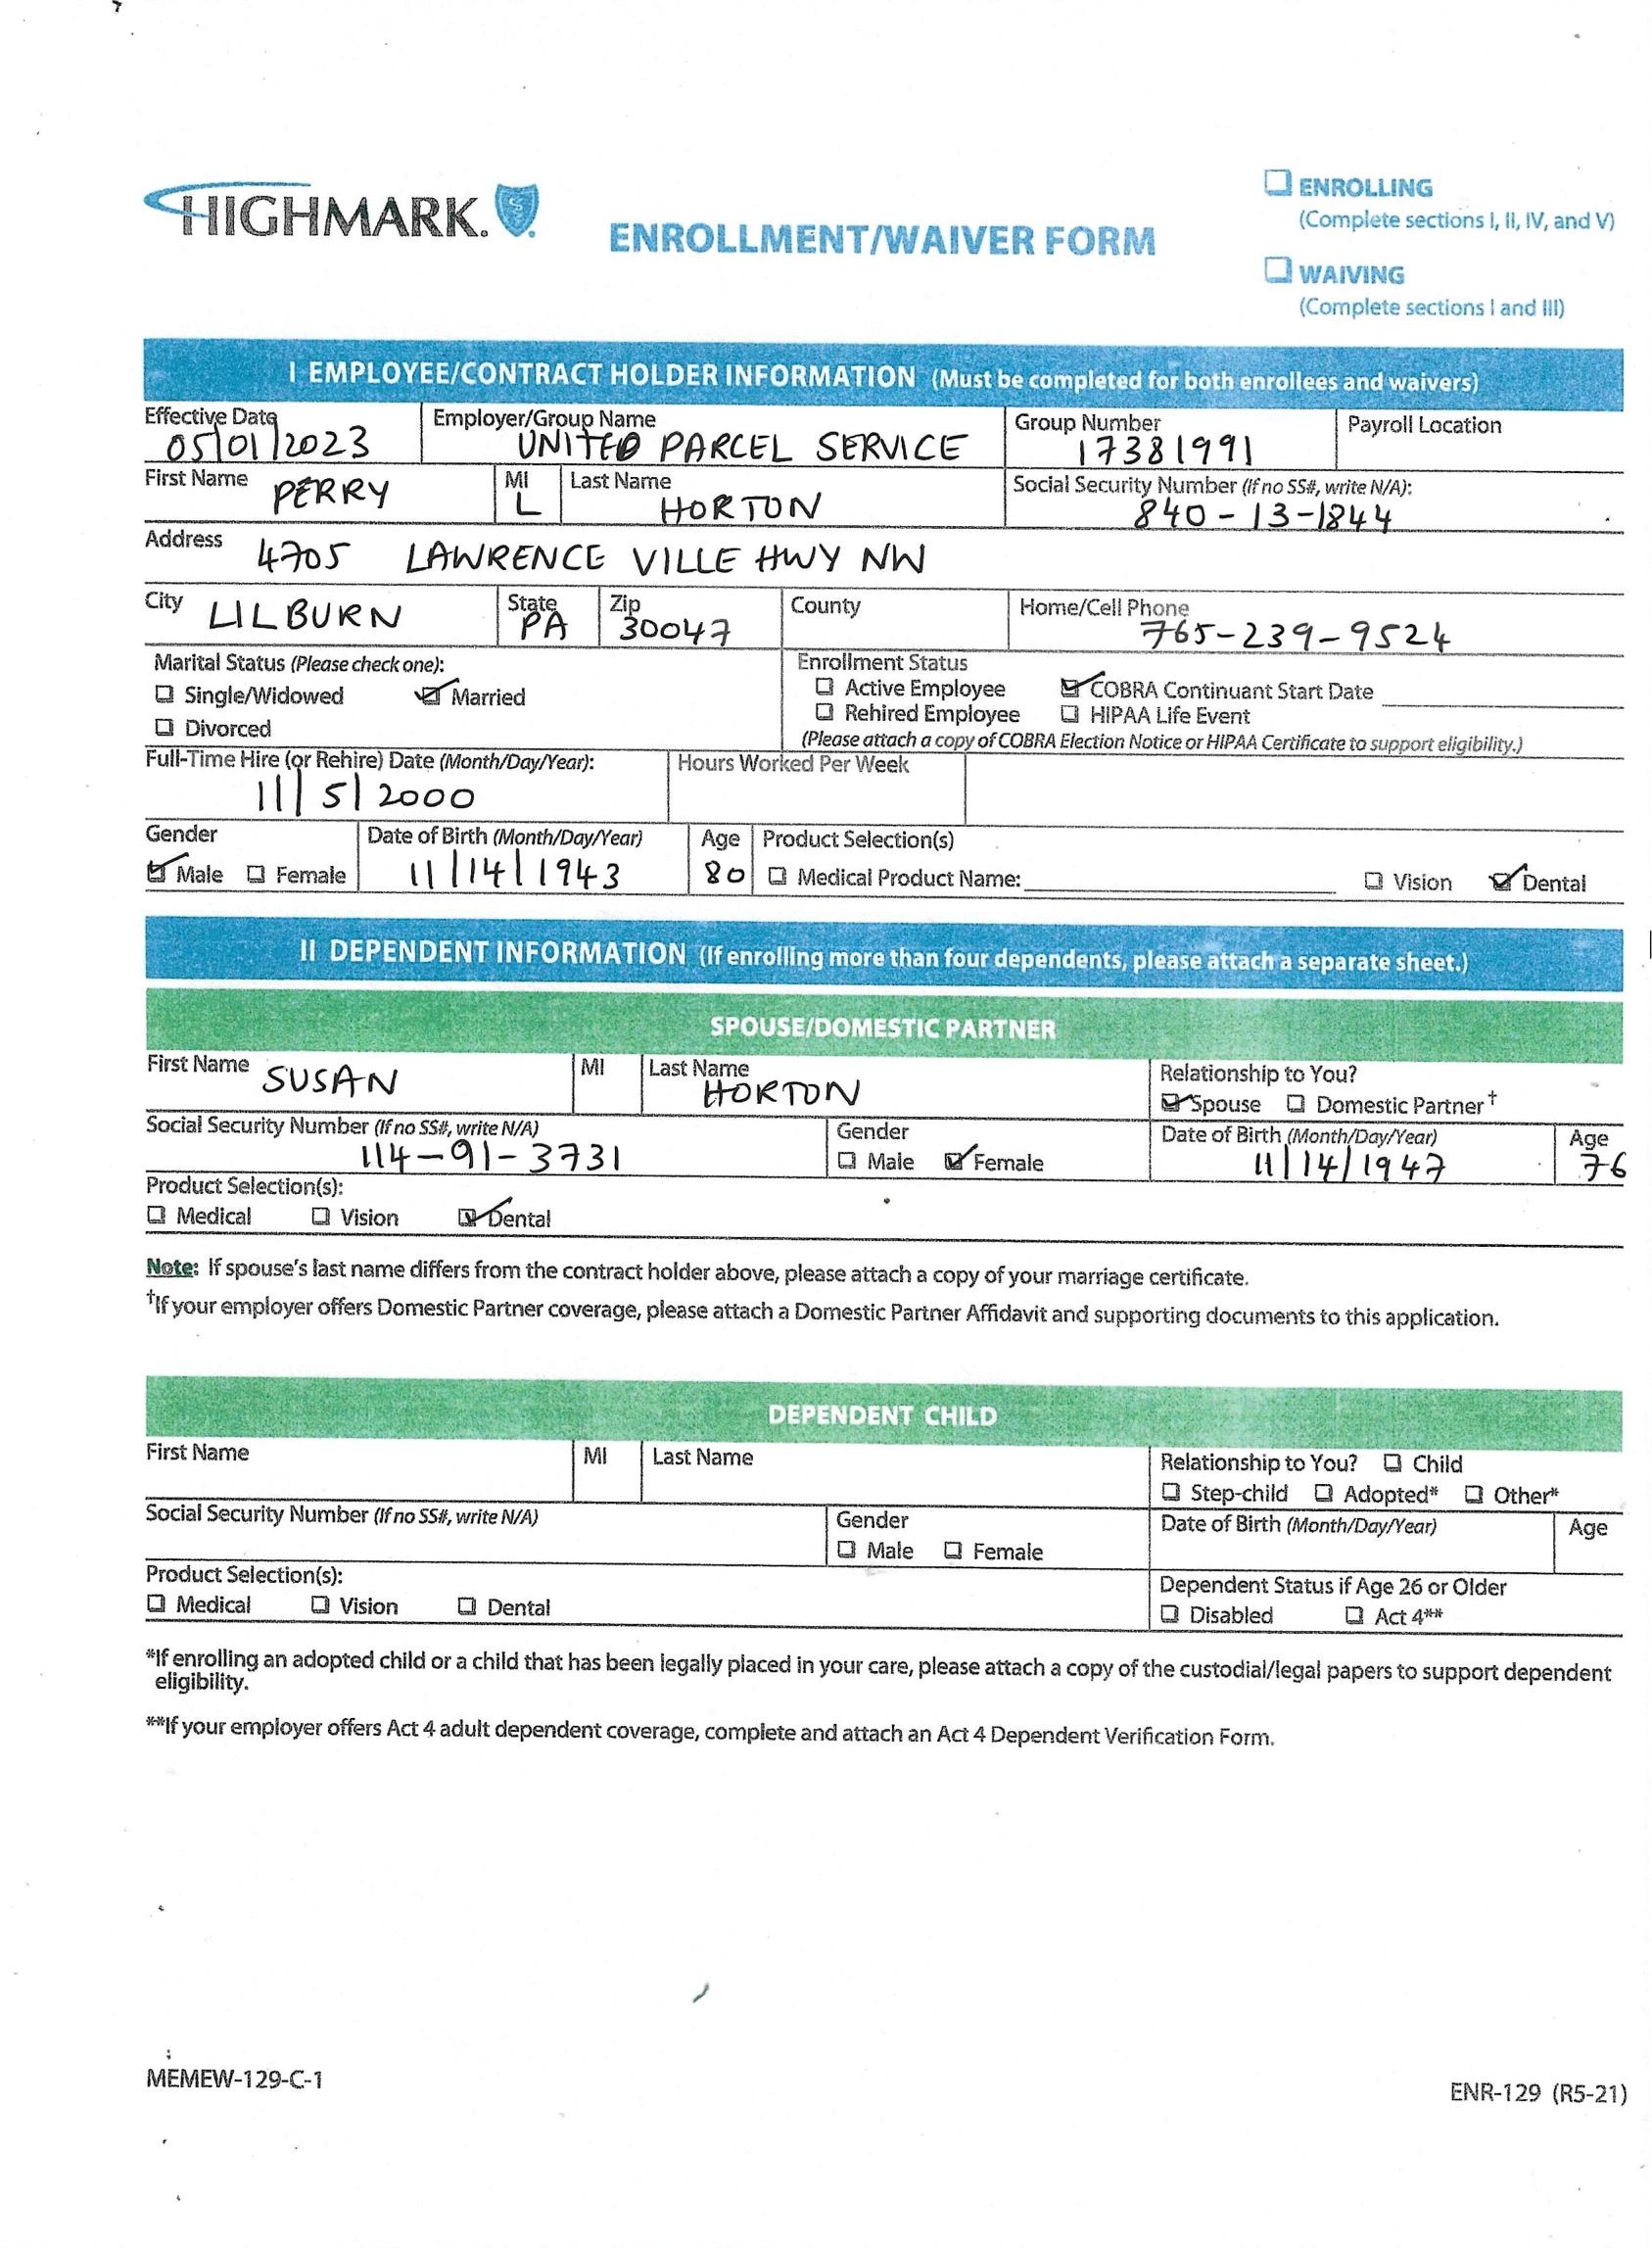 HIGHMARK.
ENROLLMENT/WAIVER FORM
☐ ENROLLING
(Complete sections I, II, IV, and V)
☐ WAIVING
(Complete sections I and III)
I EMPLOYEE/CONTRACT HOLDER INFORMATION (Must be completed for both enrollees and waivers)
Effective Date Employer/Group Name Group Number Payroll Location
05/01/2023 UNITED PARCEL SERVICE 17381991
First Name PERRY MI L Last Name HORTON Social Security Number (If no SS#, write N/A):
840-13-1844
Address 4705 LAWRENCE VILLE HWY NW
City LILBURN State PA Zip 30047 County Home/Cell Phone 765-239-9524
Marital Status (Please check one): Enrollment Status
☐ Single/Widowed ☑ Married ☐ Active Employee ☑ COBRA Continuant Start Date
☐ Divorced ☐ Rehired Employee ☐ HIPAA Life Event
(Please attach a copy of COBRA Election Notice or HIPAA Certificate to support eligibility.)
Full-Time Hire (or Rehire) Date (Month/Day/Year): Hours Worked Per Week
11/5/2000
Gender Date of Birth (Month/Day/Year) Age Product Selection(s)
☑ Male ☐ Female 11/14/1943 80 ☐ Medical Product Name: ☐ Vision ☑ Dental
II DEPENDENT INFORMATION (If enrolling more than four dependents, please attach a separate sheet.)
SPOUSE/DOMESTIC PARTNER
First Name SUSAN MI Last Name HORTON Relationship to You?
☑ Spouse ☐ Domestic Partner†
Social Security Number (If no SS#, write N/A) Gender Date of Birth (Month/Day/Year) Age
114-91-3731 ☐ Male ☑ Female 11/14/1947 76
Product Selection(s):
☐ Medical ☐ Vision ☑ Dental
Note: If spouse's last name differs from the contract holder above, please attach a copy of your marriage certificate.
†If your employer offers Domestic Partner coverage, please attach a Domestic Partner Affidavit and supporting documents to this application.
DEPENDENT CHILD
First Name MI Last Name Relationship to You? ☐ Child
☐ Step-child ☐ Adopted* ☐ Other*
Social Security Number (If no SS#, write N/A) Gender Date of Birth (Month/Day/Year) Age
☐ Male ☐ Female
Product Selection(s): Dependent Status if Age 26 or Older
☐ Medical ☐ Vision ☐ Dental ☐ Disabled ☐ Act 4**
*If enrolling an adopted child or a child that has been legally placed in your care, please attach a copy of the custodial/legal papers to support dependent
eligibility.
**If your employer offers Act 4 adult dependent coverage, complete and attach an Act 4 Dependent Verification Form.
MEMEW-129-C-1
ENR-129 (R5-21)